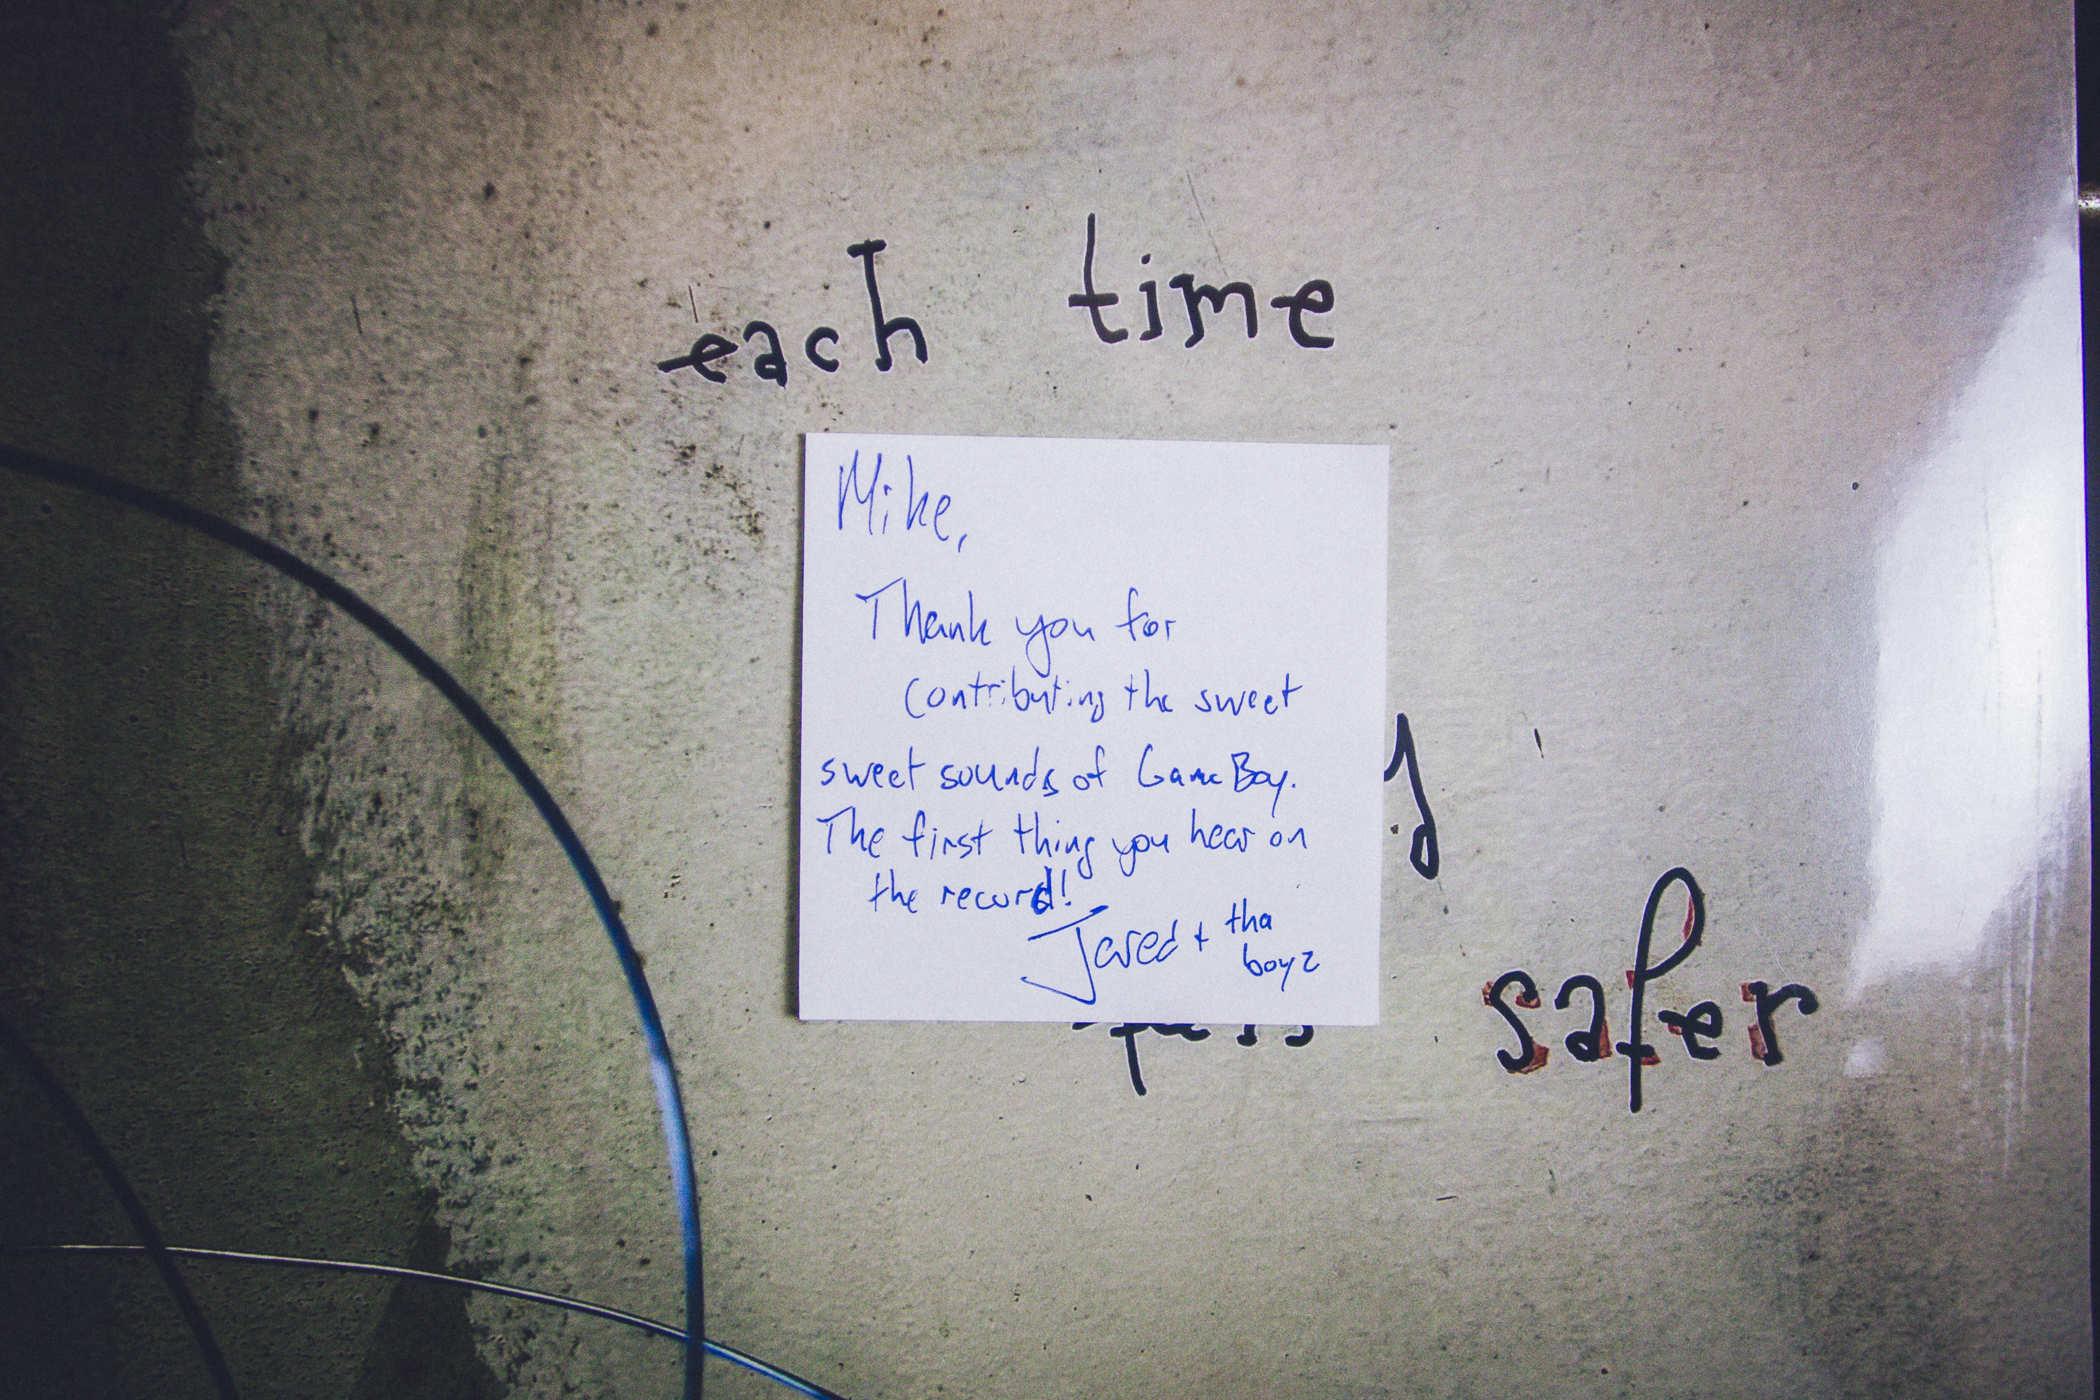 each time
Mike,
Thank you for
contributing the sweet
sweet sounds of GameBoy.
The first thing you hear on
the record!
Jared + tha
boyz
safer